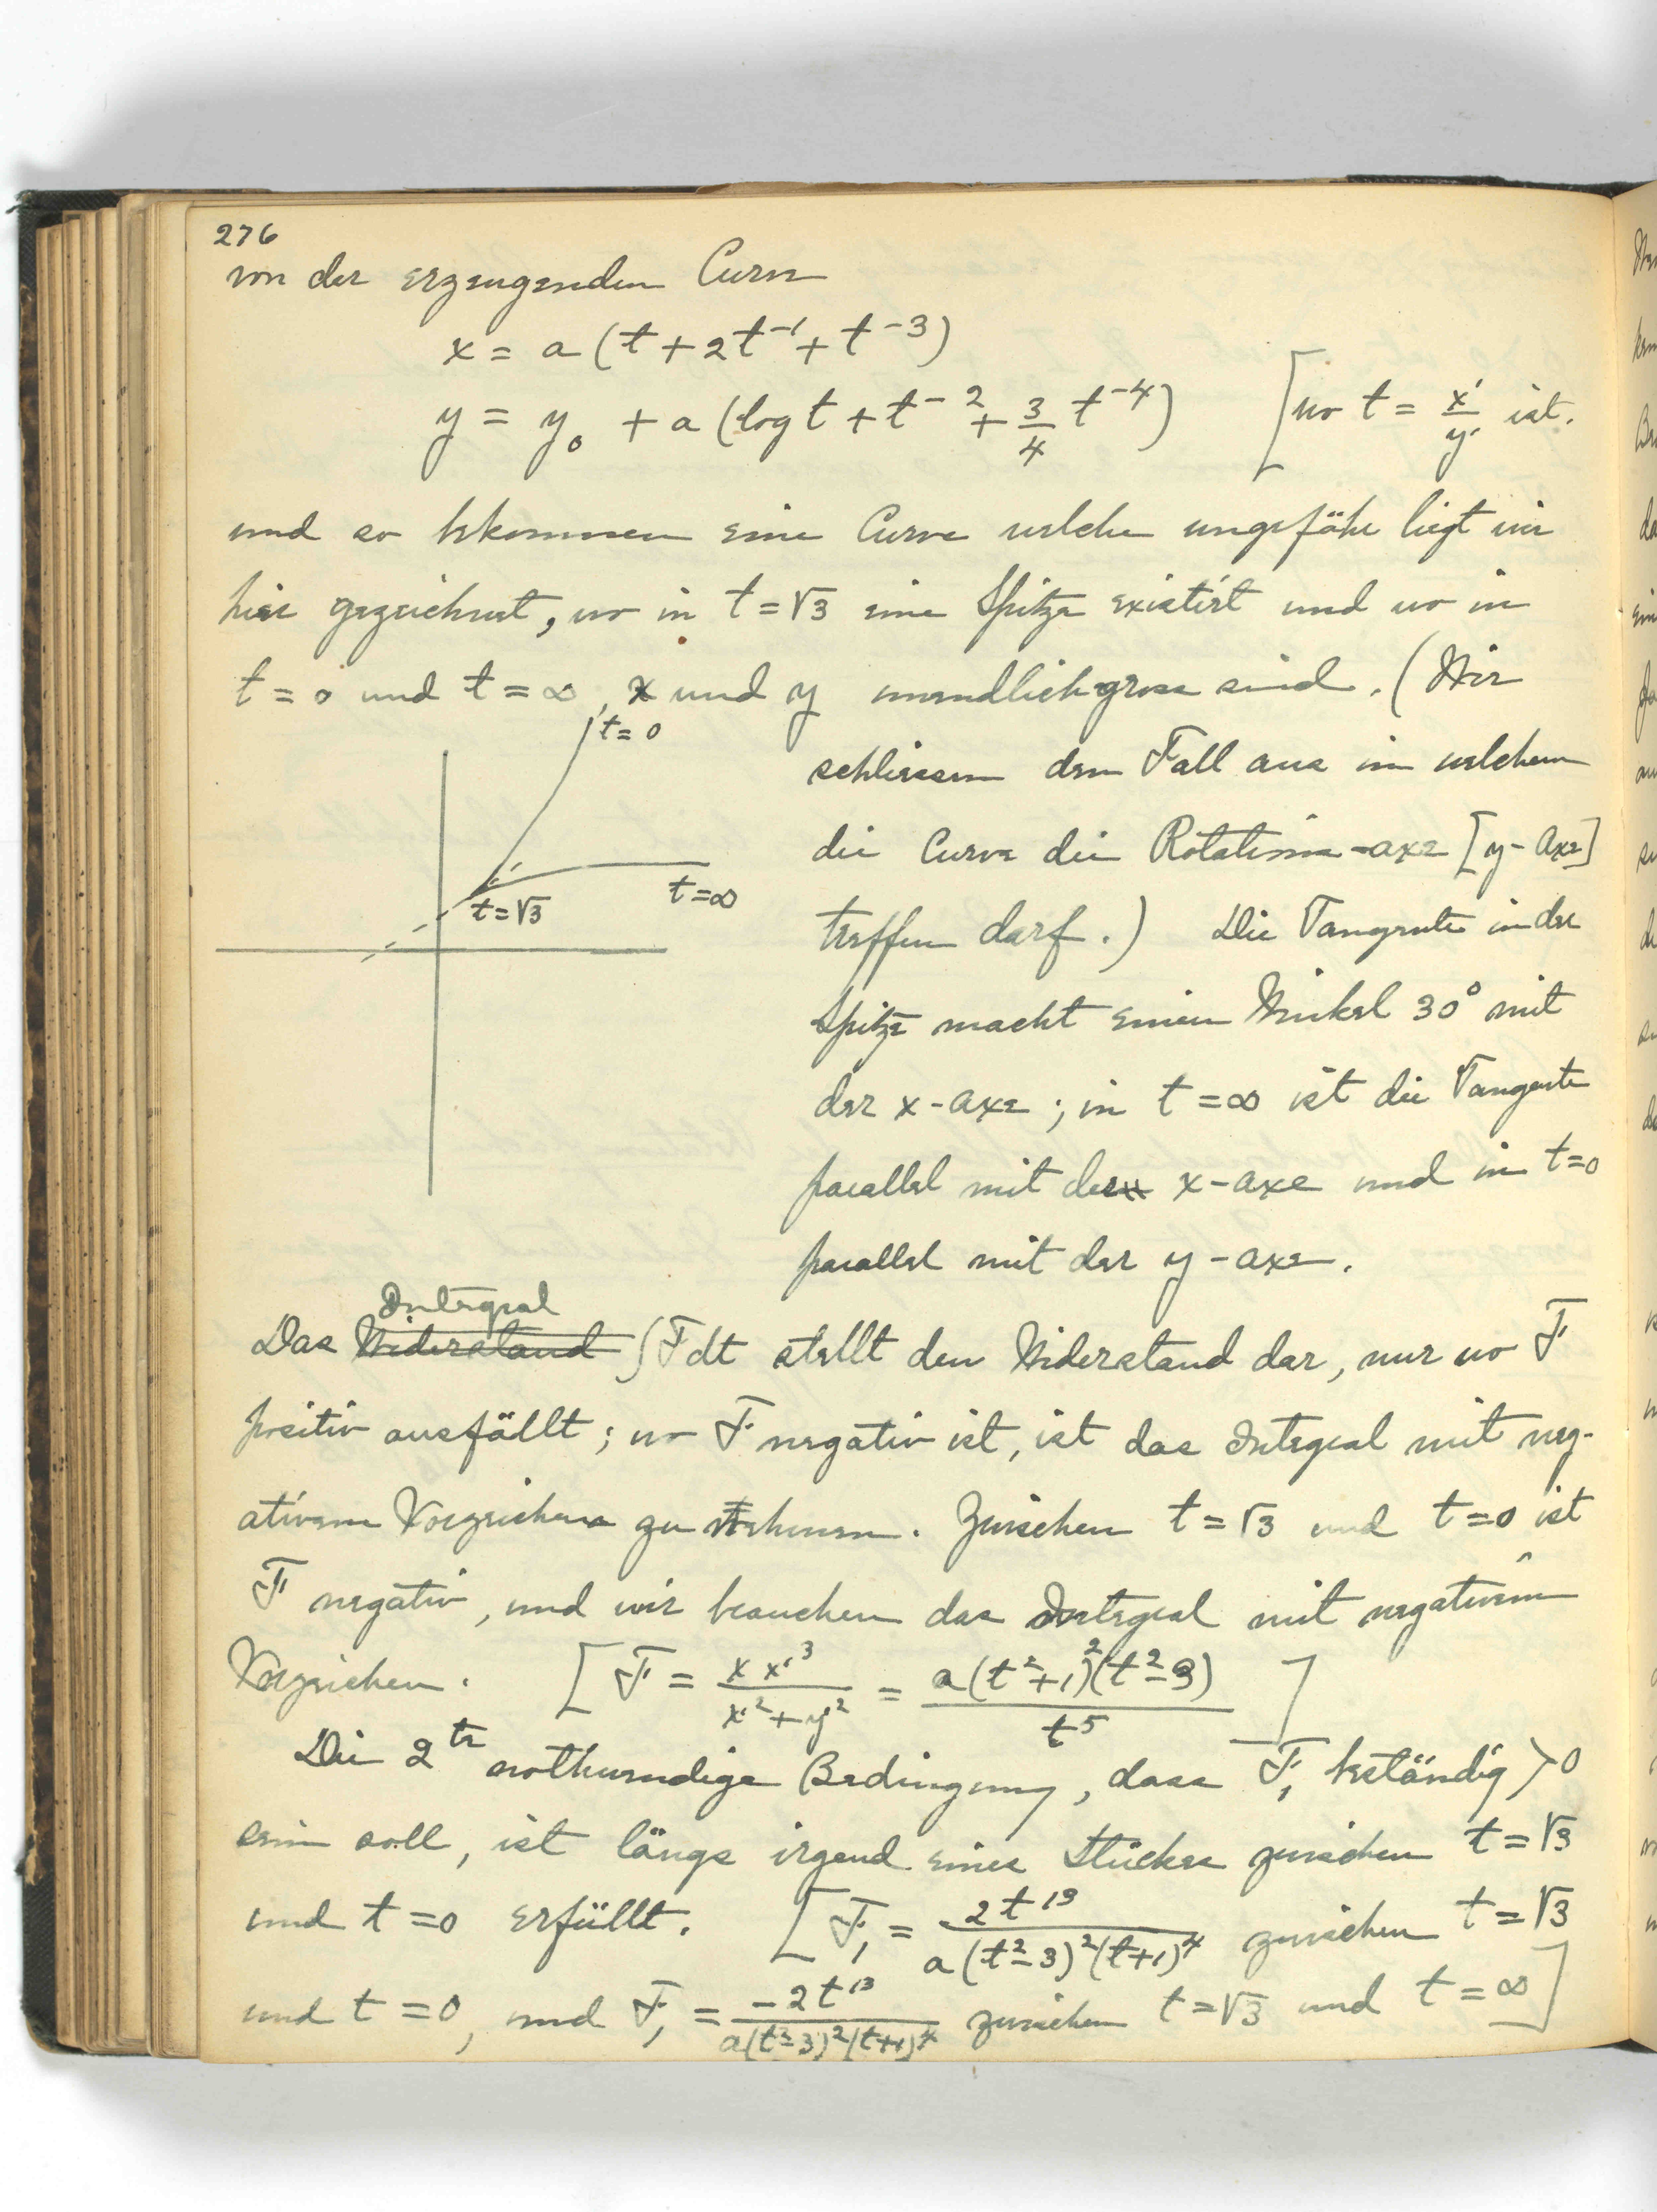 276
von der erzeugenden Curve
x = a (t + 2t⁻¹ + t⁻³)
y = y₀ + a (log t + t⁻² + 3/4 t⁻⁴) [wo t = x'/y' ist.
und so bekommen eine Curve welche ungefähr liegt wie
hier gezeichnet, wo in t = √3 eine Spitze existirt und wo in
t = 0 und t = ∞, x und y unendlich gross sind. (Wir
t = 0
schliessen den Fall aus in welchem
die Curve die Rotations-axe [y-Axe]
t = √3
t = ∞
treffen darf.) Die Tangente in der
Spitze macht einen Winkel 30° mit
der x-axe; in t = ∞ ist die Tangente
parallel mit der x-axe und in t = 0
parallel mit der y-axe.
Integral
Das Widerstand ∫F dt stellt den Widerstand dar, nur wo F
positiv ausfällt; wo F negativ ist, ist das Integral mit neg-
ativem Vorzeichen zu nehmen. Zwischen t = √3 und t = 0 ist
F negativ, und wir brauchen das Integral mit negativem
Vorzeichen. [F = x x'³/x'²+y'² = a(t²+1)²(t²-3)/t⁵]
Die 2te nothwendige Bedingung, dass F₁ beständig > 0
sein soll, ist längs irgend eines Stückes zwischen t = √3
und t = 0 erfüllt. [F₁ = 2t¹³/a(t²-3)²(t+1)⁴ zwischen t = √3
und t = 0, und F₁ = -2t¹³/a(t²-3)²(t+1)⁴ zwischen t = √3 und t = ∞]